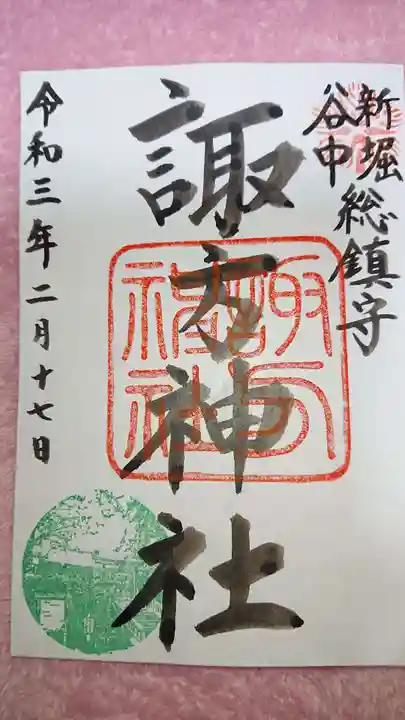 新堀
谷中
総鎮守
諏方神社
諏方
神社
令和三年二月十七日